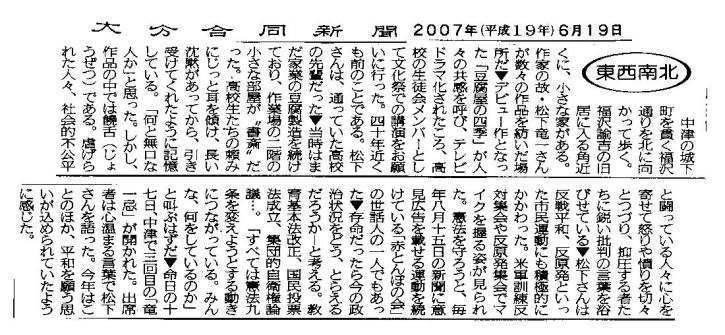 大分合同新聞 2007年(平成19年)6月19日
東西南北
中津の城下
町を貫く福沢
通りを北に向
かって歩く。
福沢諭吉の旧
居に入る角近
くに、小さな家がある。
作家の故・松下竜一さん
が数々の作品を紡いだ場
所だ▼デビュー作となっ
た「豆腐屋の四季」が人
々の共感を呼び、テレビ
ドラマ化されたころ、高
校の生徒会メンバーとし
て文化祭での講演をお願
いに行った。四十年近く
も前のことである。松下
さんは、通っていた高校
の先輩だった▼当時はま
だ家業の豆腐製造を続け
ており、作業場の二階の
小さな部屋が〝書斎〟だ
った。高校生たちの頼み
にじっと耳を傾け、長い
沈黙があってから、引き
受けてくれたように記憶
している。「何と無口な
人か」と思った。しかし、
作品の中では饒舌(じょ
うぜつ)である。虐げら
れた人々、社会的不公平
と闘っている人々に心を
寄せて怒りや憤りを切々
とつづり、抑圧する者た
ちに鋭い批判の言葉を浴
びせている▼松下さんは
反戦平和、反原発といっ
た市民運動にも積極的に
かかわった。米軍訓練反
対集会や反原発集会でマ
イクを握る姿が見られ
た。憲法を守ろうと、毎
年八月十五日の新聞に意
見広告を載せる運動を続
けている「赤とんぼの会」
の世話人の一人でもあっ
た▼存命だったら今の政
治状況をどう、とらえる
だろうか―と考える。教
育基本法改正、国民投票
法成立、集団的自衛権論
議…。「すべては憲法九
条を変えようとする動き
につながっている。みん
な、何をしているのか」
と叫ぶはずだ▼命日の十
七日、中津で三回目の「竜
一忌」が開かれた。出席
者は心温まる言葉で松下
さんを語った。今年はこ
とのほか、平和を願う思
いが込められていたよう
に感じた。